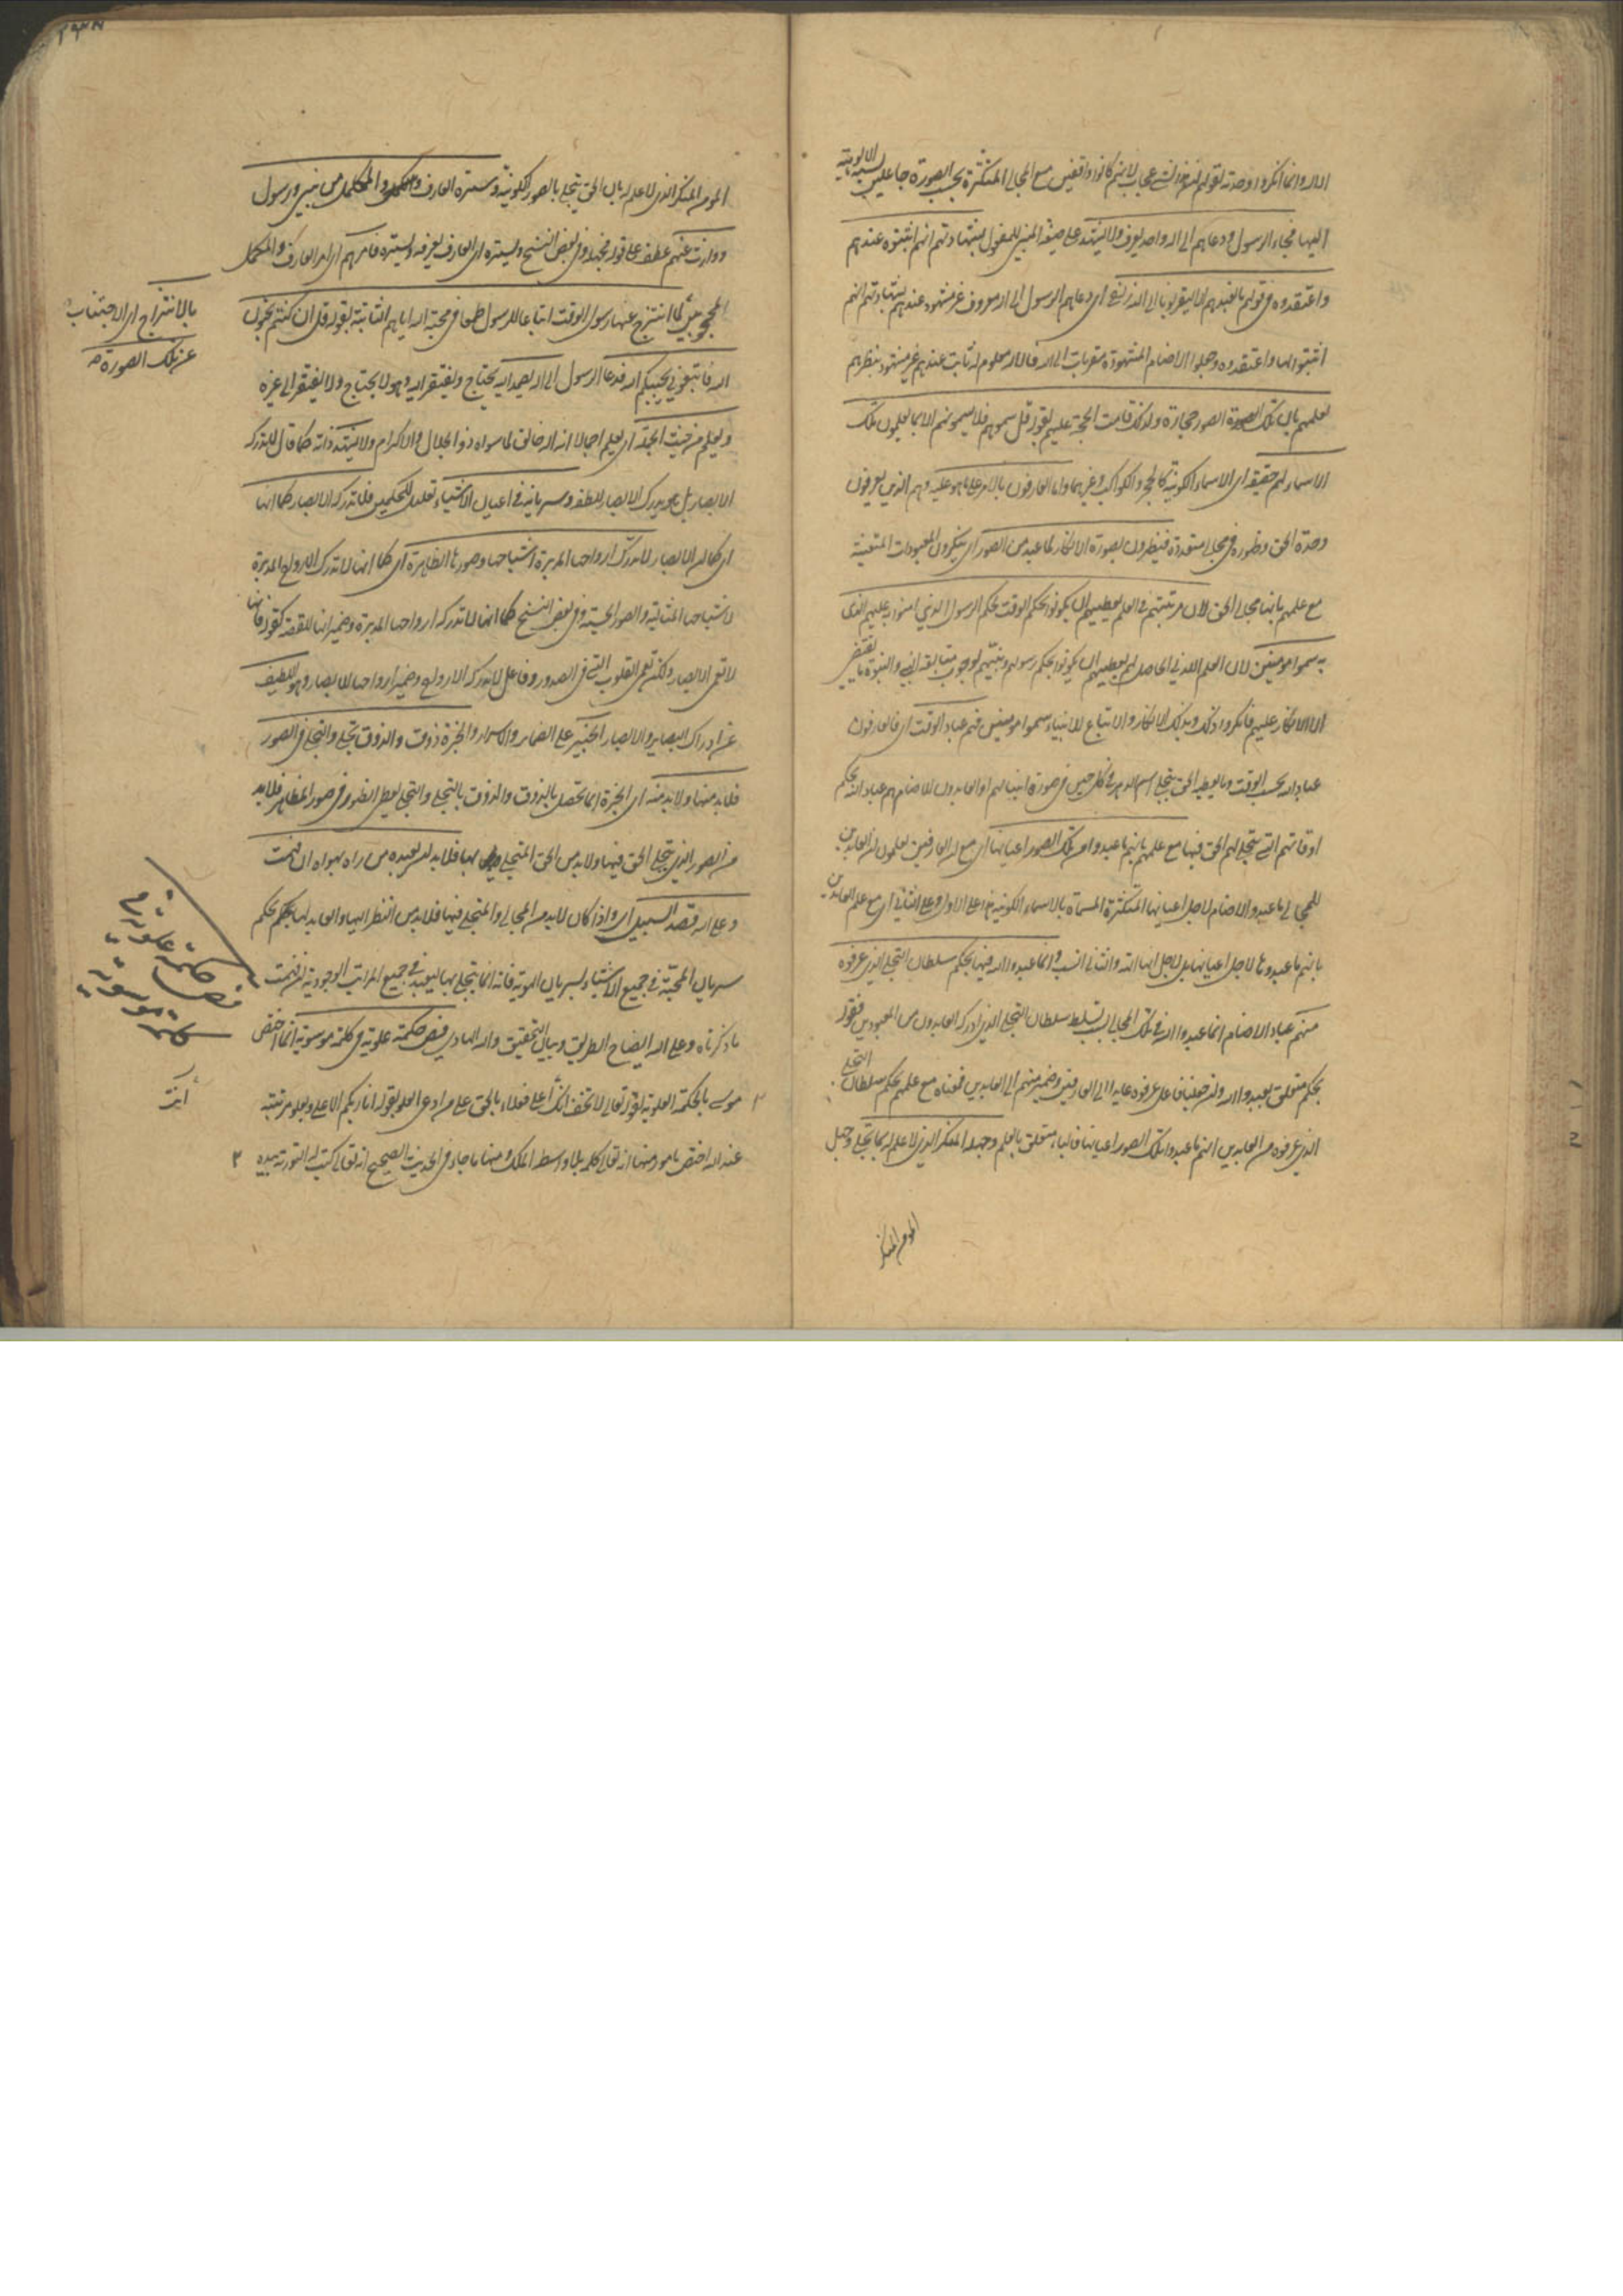 الا الله وانما انكروا وحدته لقولهم ان هذا لشئ عجاب لانهم كانوا واقفين مع المجالى المتكثرة بحسب الصورة جاعلين نسبة الالوهية
اليها فجاء الرسول ودعاهم الى اله واحد يعرف ولا يشهد على صيغة المبنى للمفعول بشهادتهم انهم اثبتوه عندهم
واعتقدوه فى قولهم ما نعبدهم الا ليقربونا الى الله زلفى اى دعاهم الرسول الى اله معروف غير مشهود عندهم بشهادتهم انهم
اثبتوا الها واعتقدوه وجعلوا الاصنام المشهودة مقربات الى الله فالاله معلوم له ثابت عندهم غير مشهود بنظرهم
لعلمهم بان تلك الصورة الصور حجارة ولذلك قامت الحجة عليهم بقوله قل سموهم فلا يسمونهم الا بما يعلمون تلك
الاسماء لهم حقيقة اى الاسماء الكونية كالحجر والكواكب وغيرهما واما العارفون بالامر على ما هو عليه وهم الذين يعرفون
وحدة الحق وظهوره فى مجالى متعددة فيظهرون بصورة الانكار لما عبد من الصور اى ينكرون المعبودات المتعينة
مع علمهم بانها مجالى الحق لان مرتبتهم فى العلم يعطيهم ان يكونوا بحكم الوقت لحكم الرسول الذى امنوا به عليهم الذى
به سموا مؤمنين لان العلم اللدنى الحاصل لهم يعطيهم ان يكونوا بحكم رسولهم ونبيهم لوجوب متابعة النبى والنبوة ما يقتضى
الا الانكار عليهم فانكروا ذلك وبذلك الانكار والاتباع للانبياء سموا مؤمنين فهم عباد الوقت اى فالعارفون
عباد الله بحسب الوقت وما يعطيه الحق بتجلى اسم الدهر فى كل حين فى صورة انبيائهم او العابدون للاصنام هم عباد الله بحكم
اوقاتهم التى يتجلى لهم الحق فيها مع علمهم بانهم ما عبدوا من تلك الصور اعيانها اى مع ان العارفين يعلمون ان العابدين
للمجالى ما عبدوا الاصنام لاجل اعيانها المتكثرة المسماة بالاسماء الكونية هذا على الاول وعلى الثانى اى مع علم العابدين
بانهم ما عبدوها لاجل اعيانها بل لاجل انها الله والثانى انسب وانما عبدوا الله فيها بحكم سلطان التجلى الذى عرفوه
منهم عباد الاصنام انما عبدوا الله فى تلك المجالى بسبب تسلط سلطان التجلى الذى ادركه العابدون من المعبودين فقوله
بحكم متعلق بعبدوا الله وان جعلنا فاعل عرفوه عايدا الى العارفين وضمير منهم الى العابدين فمعناه مع علمهم بحكم سلطان التجلى
الذى عرفوه من العابدين انهم ما عبدوا تلك الصور اعيانها فالباء متعلق بالعلم وجهله المنكر الذى لا علم له بما تجلى وجهل
المؤمن المنكر
المؤمن المنكر الذى لا علم له بان الحق يتجلى بالصور الكونية وستره العارف المكمل من نبى ورسول
ووارث عنهم عطف على قوله جهله وفى بعض النسخ ويستره اى العارف يعرفه ويستره فامرهم اى امر العارف والمكمل
المحجوبين لما انتزح عنها رسول الوقت اتباعا للرسول طمعا فى محبة الله اياهم الثابتة بقوله قل ان كنتم تحبون
الله فاتبعونى يحببكم الله فدعا الرسول الى اله يصمد اليه يحتاج ويفتقر اليه وهو لا يحتاج ولا يفتقر الى غيره
ويعلم من حيث الجملة اى يعلم اجمالا انه اله خالق لما سواه ذو الجلال والاكرام ولا يشهد ذاته كما قال لا تدركه
الابصار بل هو يدرك الابصار للطفه وسريانه فى اعيان الاشياء تعليل للحكمين فلا تدركه الابصار كما انها
اى كما ان الابصار لا تدرك ارواحها المدبرة اشباحها وصورها الظاهرة اى كما انها لا تدرك الارواح المدبرة
لاشباحها المثالية والصور الحسية وفى بعض النسخ كما انها لا تدرك ارواحها المدبرة وضمير انها للقصة كقوله فانها
لا تعمى الابصار ولكن تعمى القلوب التى فى الصدور وفاعل لا تدرك الارواح وضمير ارواحها للابصار وهو اللطيف
عن ادراك البصاير والابصار الخبير على الضماير والاسرار والخبرة ذوق والذوق تجلى والتجلى فى الصور
فلا بد منها ولا بد منه اى الخبرة انما تحصل بالذوق والذوق بالتجلى والتجلى يعطى الظهور فى صور المظاهر فلا بد
من الصور الذى يتجلى الحق فيها ولا بد من الحق المتجلى بها فلا بد ان يعبده من راه بهواه ان فهمت
وعلى الله قصد السبيل اى واذا كان لا بد من المجالى والمتجلى فيها فلا بد من النظر اليها والعابد لها بحكم بحكم
سريان المحبة فى جميع الاشياء لسريان الهوية فانه انما يتجلى بها ليعبد فى جميع المراتب الوجودية ان فهمت
ما ذكرناه وعلى الله ايضاح الطريق وبيان التحقيق والله الهادى فص حكمة علوية فى كلمة موسوية انما اختص
موسى بالحكمة العلوية لقوله تعالى لا تخف انك انت الاعلى فعلاه بالحق على من ادعى العلو بقوله انا ربكم الاعلى ولعلو مرتبته
عند الله اختص بامور منها انه تعالى كلمه بلا واسطة الملك ومنها ما جاء فى الحديث الصحيح انه تعالى كتب له التورية بيده
بالانتزاح اى الاجتناب
عن تلك الصورة
فص حكمة علوية
كلمة موسوية
انت